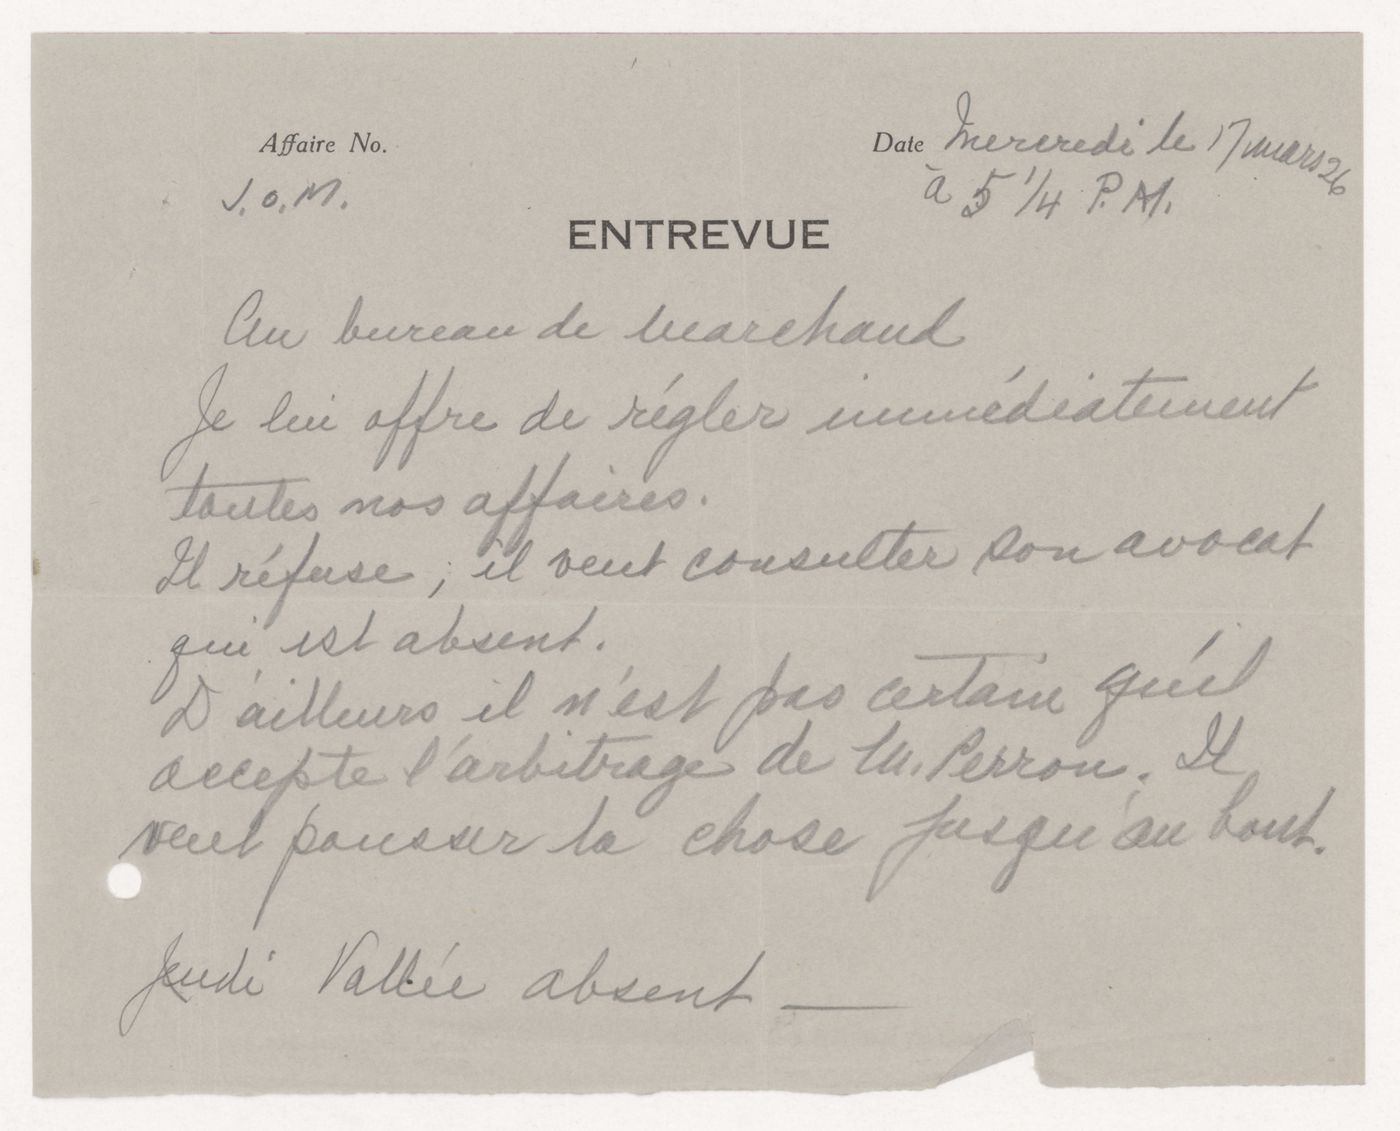 Affaire No.
Date Mercredi le 17 mars 26
J.O.M.
à 5 1/4 P.M.
ENTREVUE
Au bureau de Marchand
Je lui offre de régler immédiatement
toutes nos affaires.
Il réfuse ; il veut consulter son avocat
qui est absent.
D'ailleurs il n'est pas certain qu'il
accepte l'arbitrage de M. Perron. Il
veut pousser la chose jusqu'au bout.
Jeudi Vallée absent —